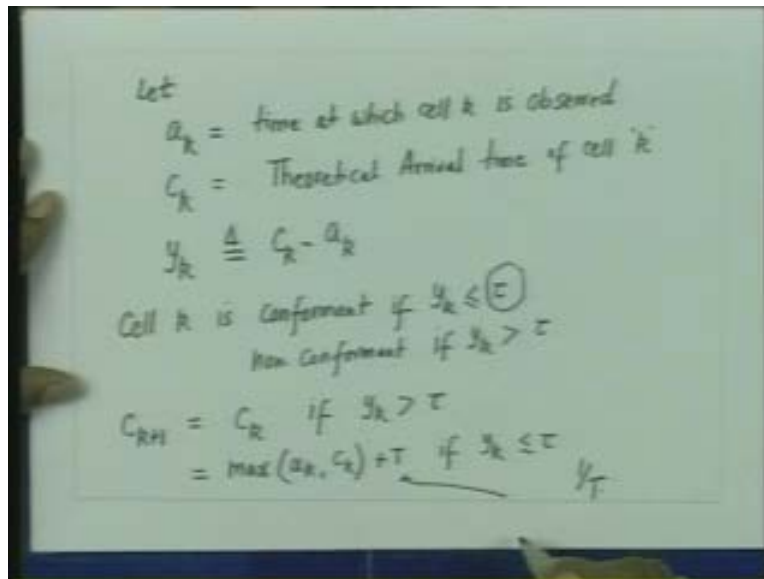 Let
a_k = time at which cell k is observed
C_k = Theoretical Arrival time of cell 'k'
y_k ≜ C_k - a_k
Cell k is conformant if y_k ≤ τ
non conformant if y_k > τ
C_{k+1} = C_k if y_k > τ
= max (a_k, C_k) + T if y_k ≤ τ
1/T